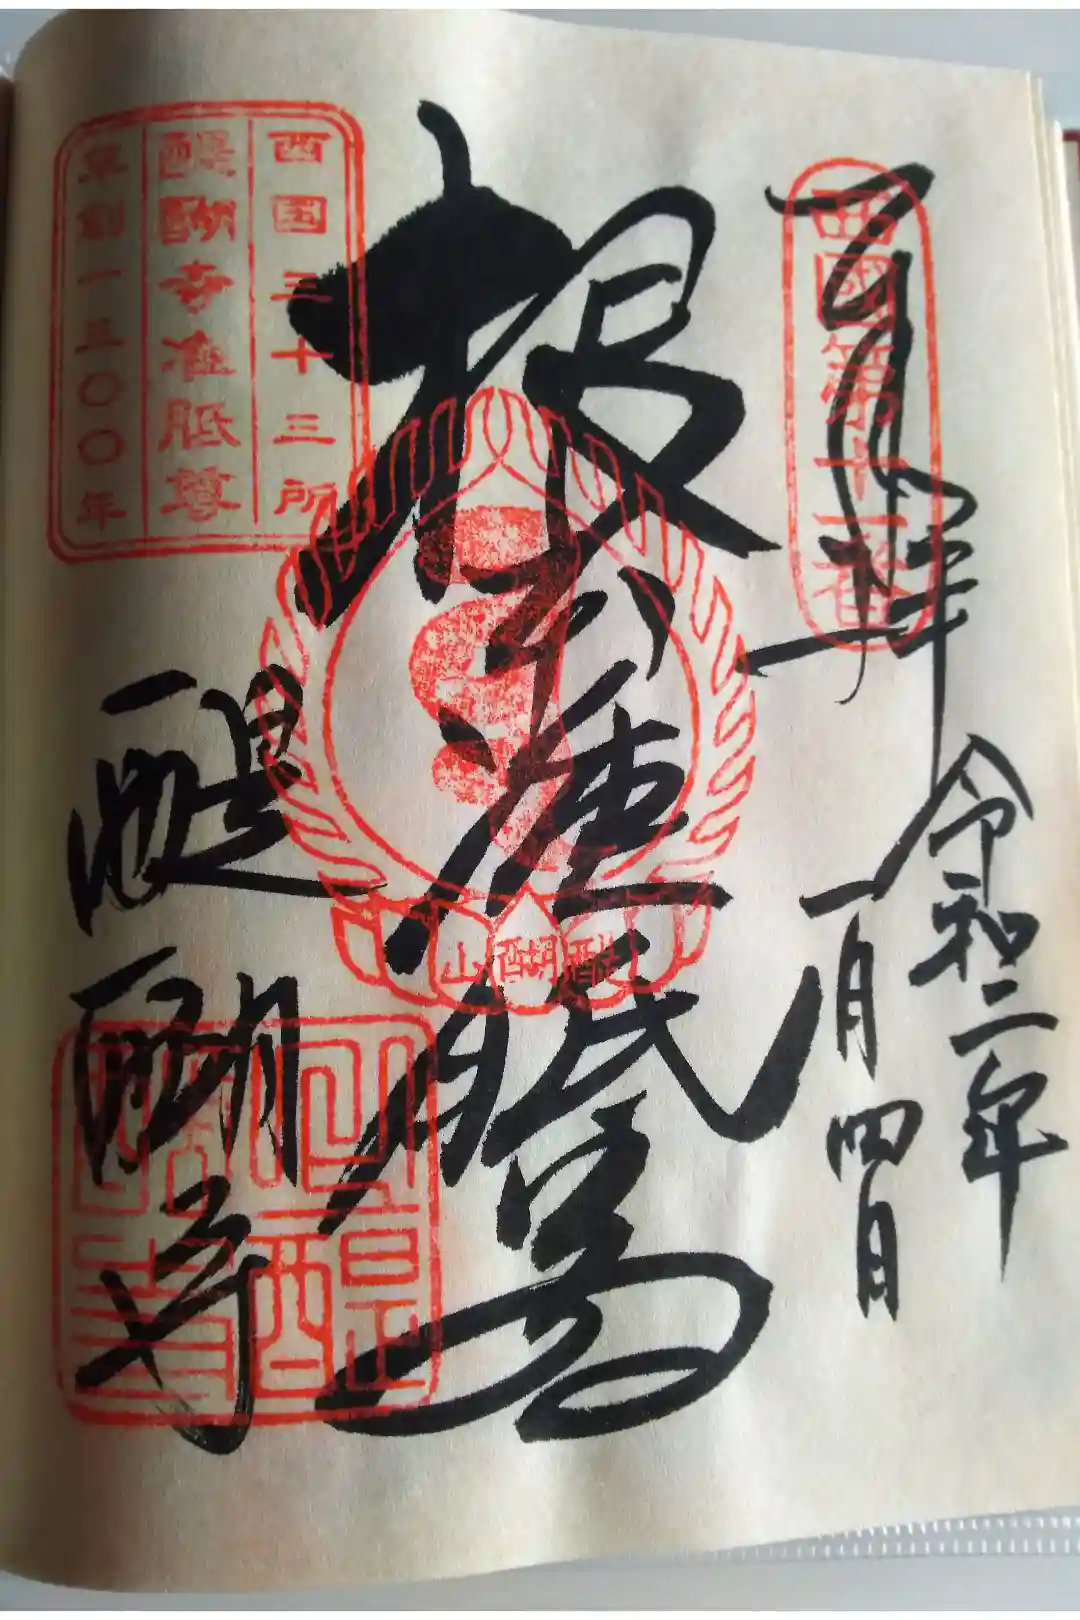 奉拝
西國第十一番
令和二年
一月四日
根本准胝尊
醍醐山
西国三十三所
醍醐寺准胝尊
草創一三〇〇年
醍醐寺
醍醐寺